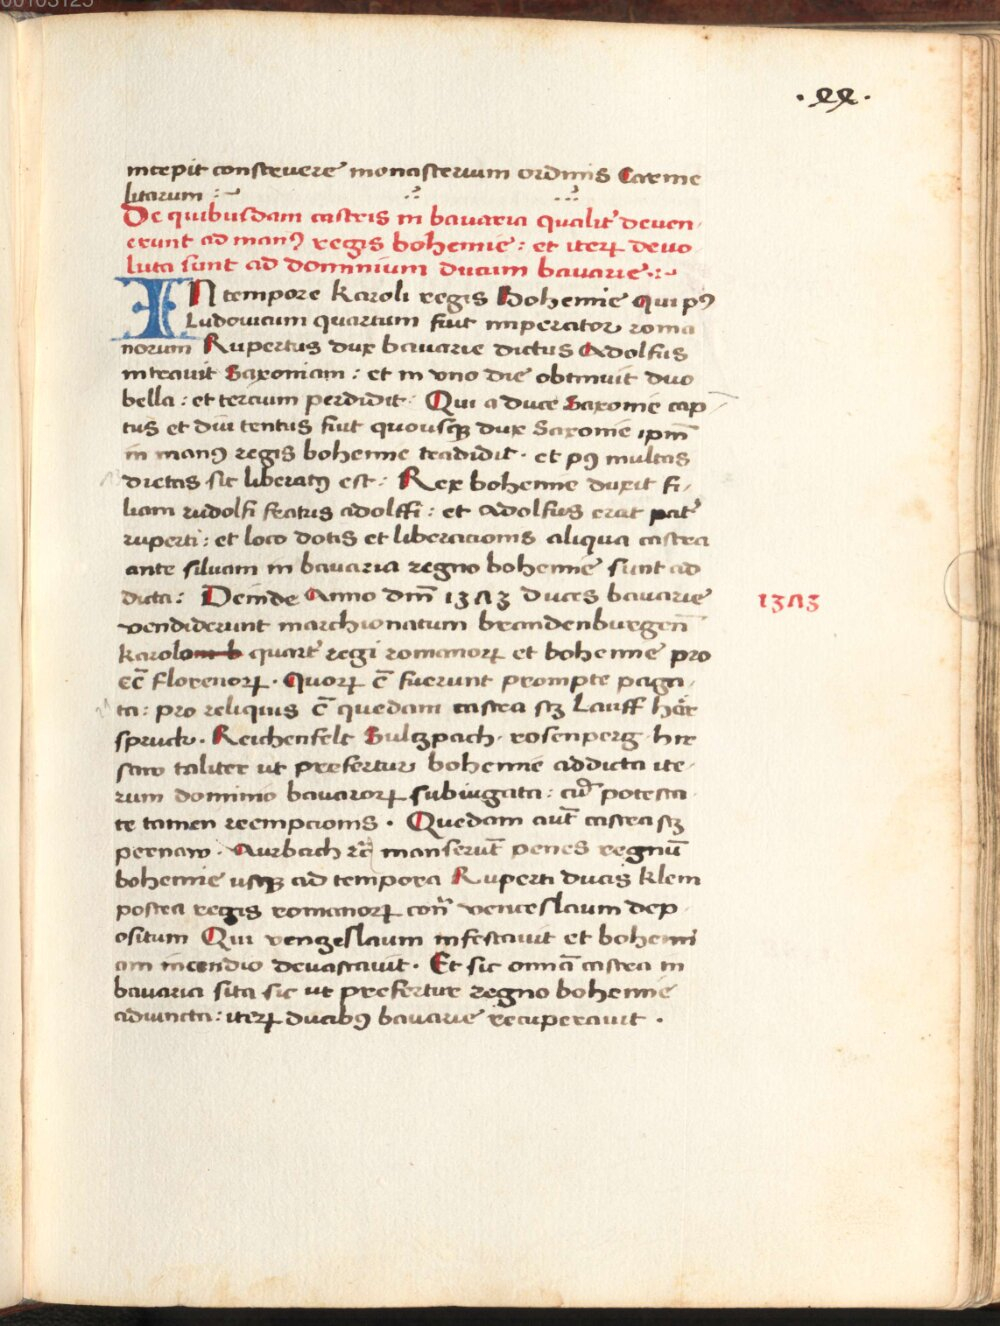 ·22·
incepit construere monasterium ordinis Carme
litarum :~
De quibusdam castris in bavaria qualit̉ deven-
erunt ad manꝰ regis bohemie : et iterꝝ devo
luta sunt ad dominium ducum bavarie :~
IN tempore Karoli regis Bohemie Qui pꝰ
Ludovicum quartum fuit imperator roma
norum Rupertus dux bavarie dictus Adolfus
intravit Saxoniam : et in uno die obtinuit duo
bella : et tercium perdidit · Qui a duce Saxonie cap
tus et diu tentus fuit quousqꝫ dux Saxonie ipm̅
in manꝰ regis bohemie tradidit · et pꝰ multas
dietas sic liberatꝰ est : Rex bohemie duxit fi-
liam rudolfi fratris adolffi : et Adolfus erat pat̉
ruperti : et loco dotis et liberacionis aliqua castra
ante silvam in bavaria regno bohemie sunt ad
dicta : Deinde Anno dm̅ 1373 Duces bavarie
1373
vendiderunt marchionatum brandenburgen̅
karolo quart̉ regi romanorꝝ et bohemie pro
cc̅ florenorꝝ · Quorꝝ c̅ fuerunt prompte paga-
ta : pro reliquis c̅ quedam castra sꝫ Lauff her
spruck · Reichenfelt Sultzpach · rosenperg · hir
saw taliter ut prefertur bohemie addicta ite-
rum dominio bavarorꝝ subiugata : cu̅ potesta
te tamen reempcionis · Quedam aut̅ castra sꝫ
pernaw · Aurbach rc̅ manseru̅t penes regnu̅
bohemie usqꝫ ad tempora Ruperti ducis klem
postea regis romanorꝝ con̅ venceslaum dep
ositum Qui venzeslaum infestavit et bohemi
am incendio devastavit · Et sic omnia̅ castra in
bavaria sita sic ut prefertur regno bohemie
adiuncta : iterꝝ ducibꝰ bavarie recuperavit ·